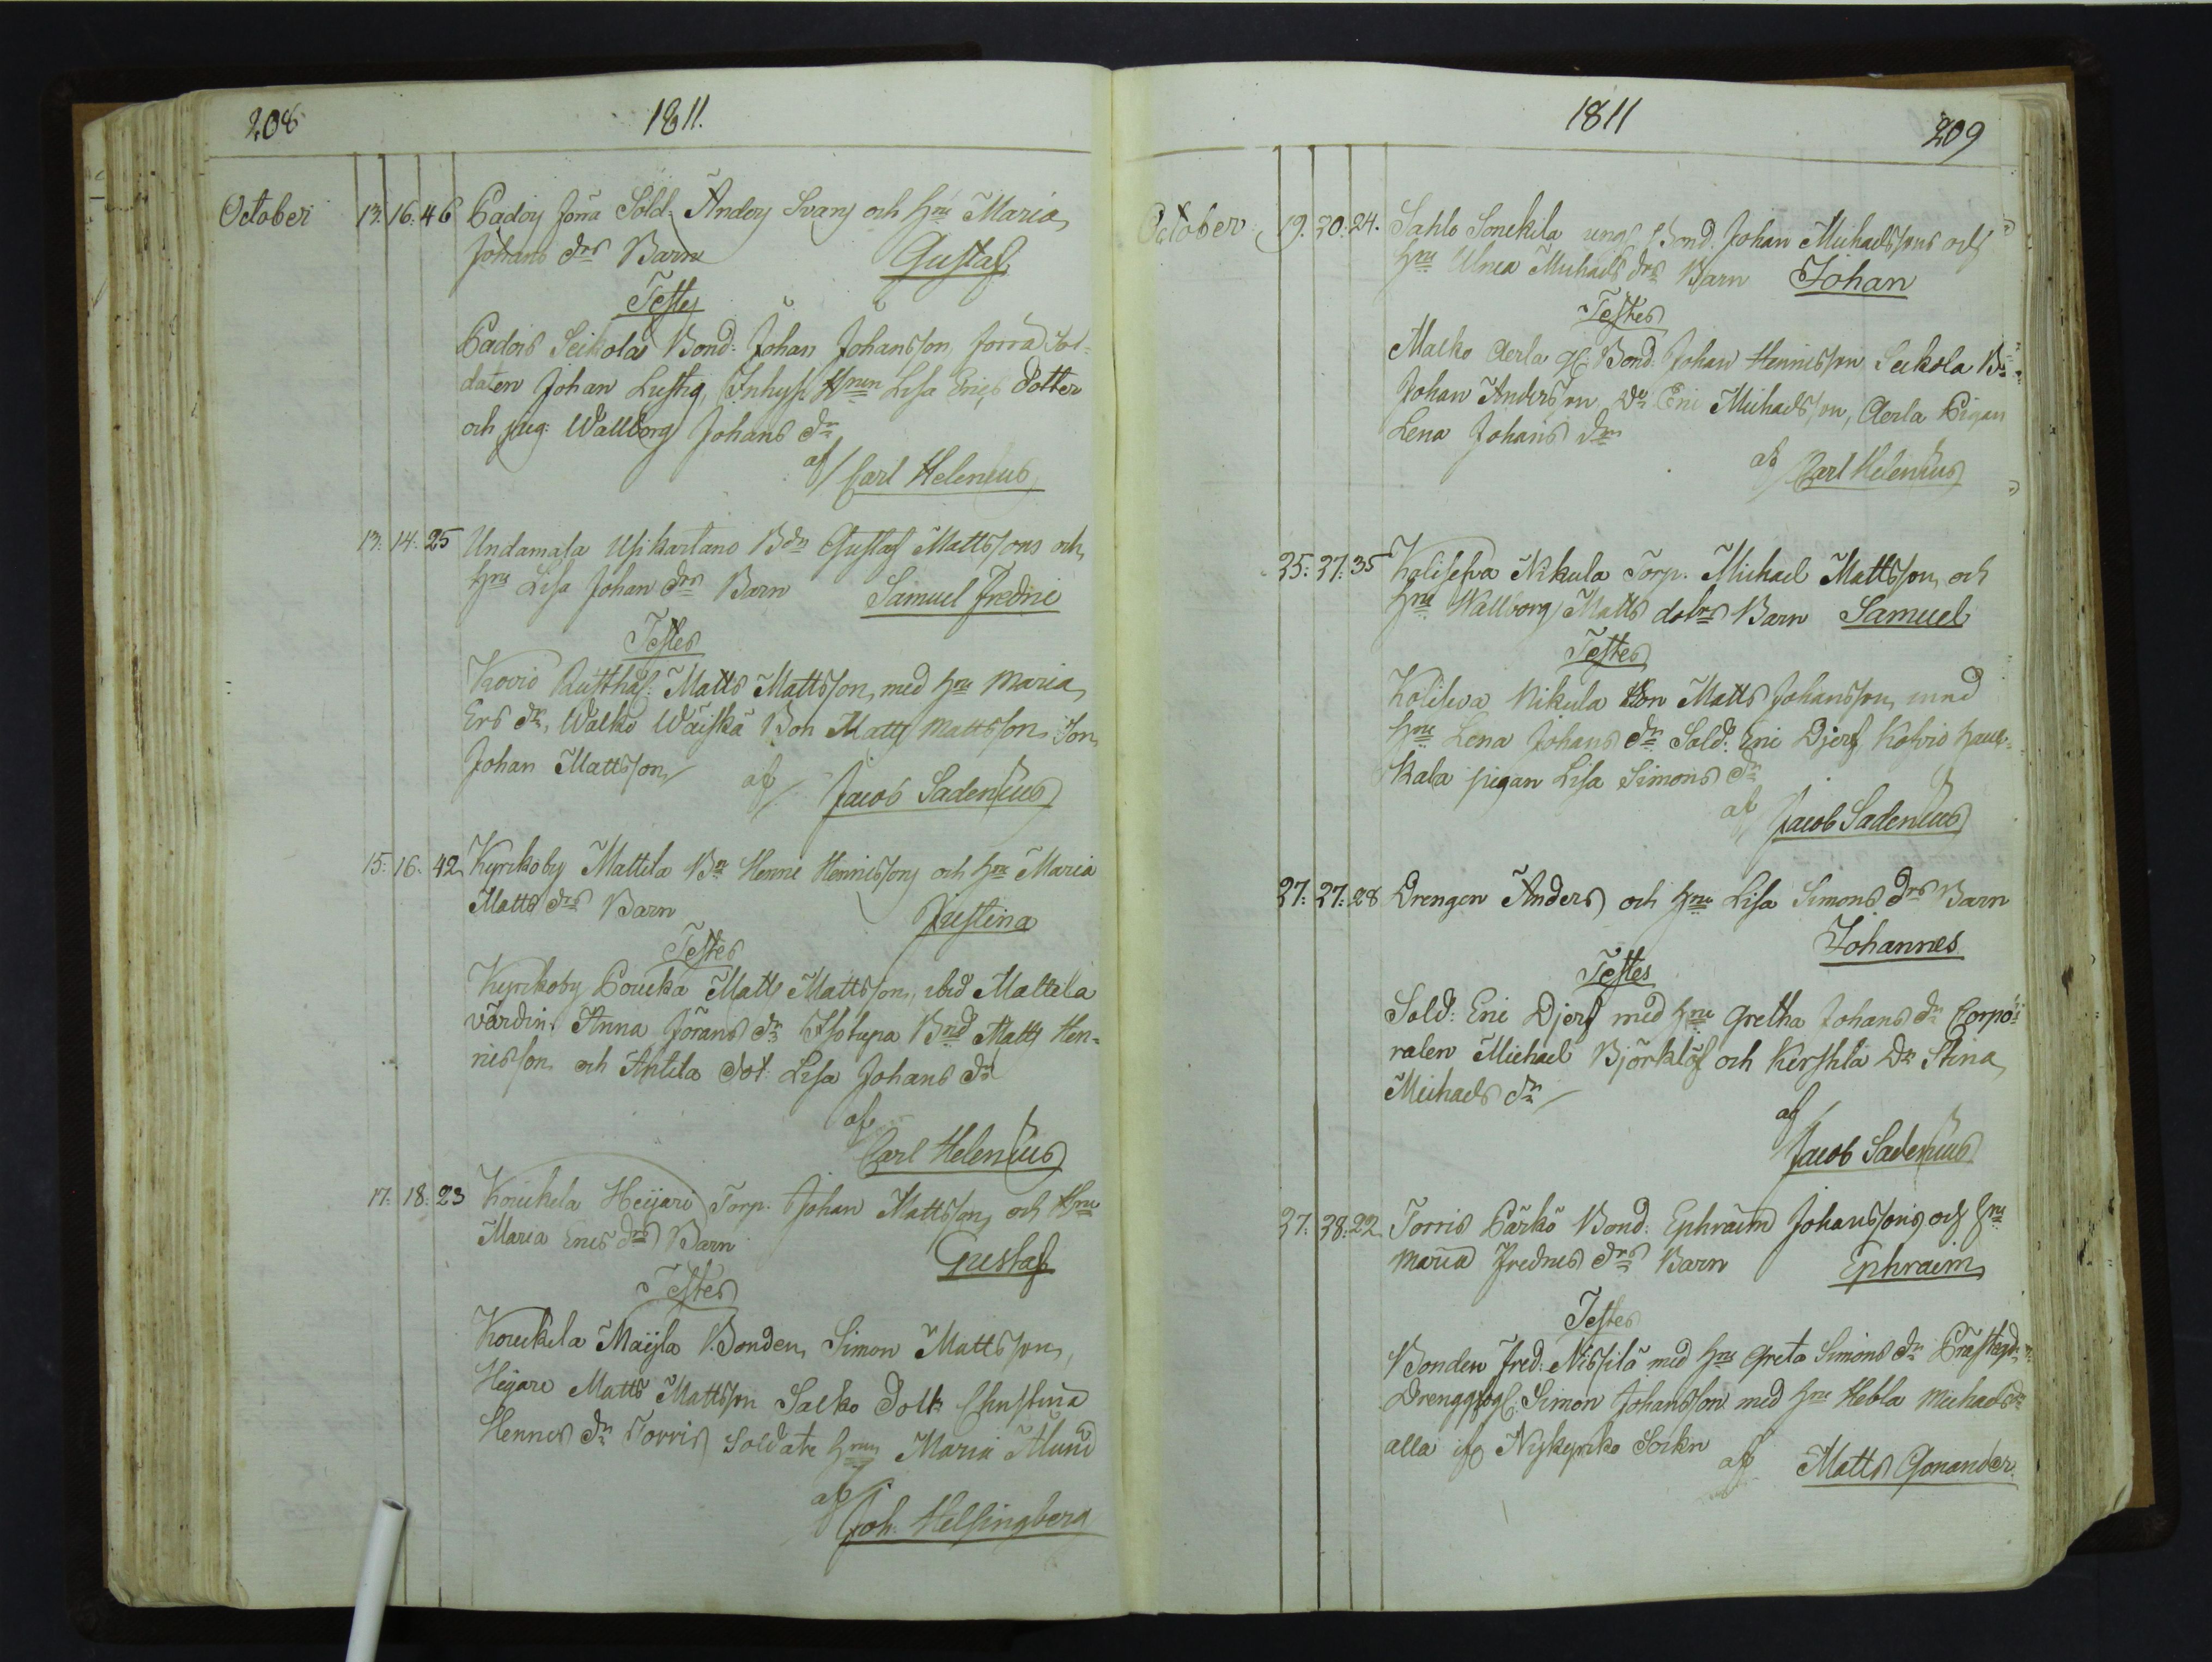 208 1811.
October 13. 16. 46 Padois förra Sold. Anders Svans och Hru Maria
Johans drs Barn Gustaf
Testes
Padois Seikola Bond: Johan Johansson, förra Sol-
daten Johan Lustig, Inhys Hrun Lisa Erics Dotter
och pig: Wallborg Johans dr
af Carl Helenius
13: 14: 25 Undamala Usikartano Bdn Gustaf Mattssons och
Hru Lisa Johan drs Barn Samuel Fredric
Testes
Kovio Rutthål: Matts Mattsson, med Hru Maria
Ers dr, Walko Wäiskä Bon Matts Mattssons Son
Johan Mattsson af Jacob Sadenius
15: 16. 42 Kyrkoby Mattila Bn Henric Henricssons och Hru Maria
Matts drs Barn Justina
Testes
Kyrkoby Poucka Matts Mattsson, ibid Mattila
värdin: Anna Jörans dr Isotupa Bnd Matts Hen-
ricsson och Antila dot: Lisa Johans dr
af
Carl Helenius
17: 18: 23 Koukela Heijari Torp. Johan Mattsson och Hru
Maria Erics drs Barn
Gustaf
Testes
Koukela Maijla Bonden Simon Mattsson,
Hejare Matts Mattsson Salko Dottr Christina
Henrics dr Torris Soldate Hrun Maria Ahlund
af
Joh. Helsingberg
1811 209
October 19. 20. 24. Sahlo Sonckila ung Bond. Johan Michaelssons och
Hru Ulrica Michaels drs Barn Johan
Testes
Maeko Aerla gl. Bond: Johan Henricsson Seikola Bn
Johan Andersson, Do Eric Michaelsson, Aerla Pigan
Lena Johans dr
af Carl Helenius
25: 27: 35 Kolisewa Nikula Torp. Michael Mattsson, och
Hru Wallborg Matts dotrs Barn Samuel
Testes
Kolisewa Nikula Bon Matts Johansson, med
Hru Lena Johans dr Sold: Eric Djerf, Kovio Hauk-
kala pigan Lisa Simons dr
af Jacob Sadenius
27: 27: 28 Drengen Anders och Hru Lisa Simons drs Barn
Johannes
Testes
Sold: Eric Djerf med Hru Gretha Johans dr Corpo-
ralen Michael Björklöf och Kershla Dr Stina
Michaels dr
af
Jacob Sadenius
27: 28: 22 Torris Pärkö Bond: Ephraim Johanssons och Hru
Maria Fredrics drs Barn Ephraim
Testes
Bonden Fred: Nissilä med Hru Greta Simons dr
Simon Johansson med Hru Hebla Michaels dr
alla if Nykyrko Sockn af Matts Gonander.